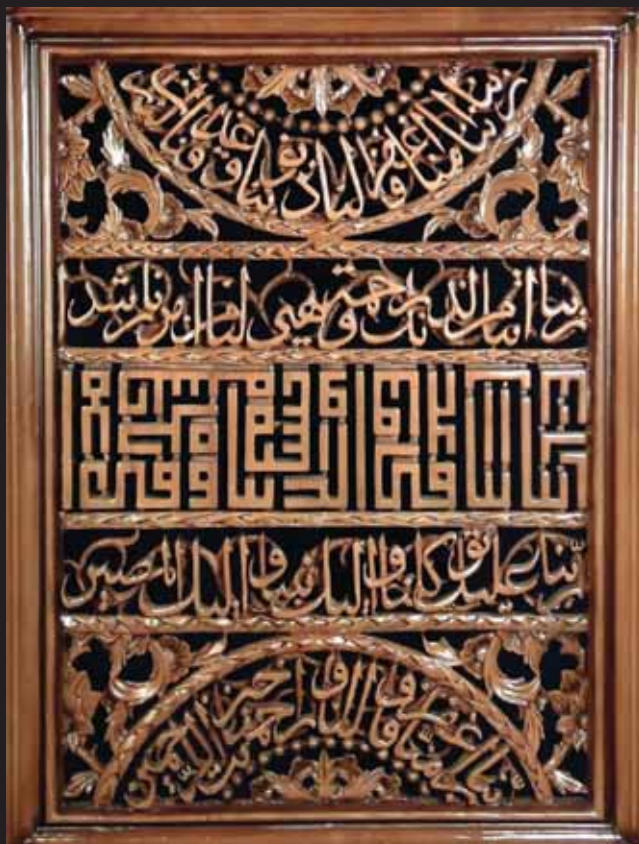 ربنا اننا امنا فاغفر لنا ذنوبنا وقنا عذاب النار
ربنا اتنا من لدنك رحمة وهيئ لنا من امرنا رشدا
ربنا اتنا في الدنيا حسنة وفي
ربنا عليك توكلنا واليك انبنا واليك المصير
ربنا امنا فاغفر لنا وارحمنا وانت خير الراحمين